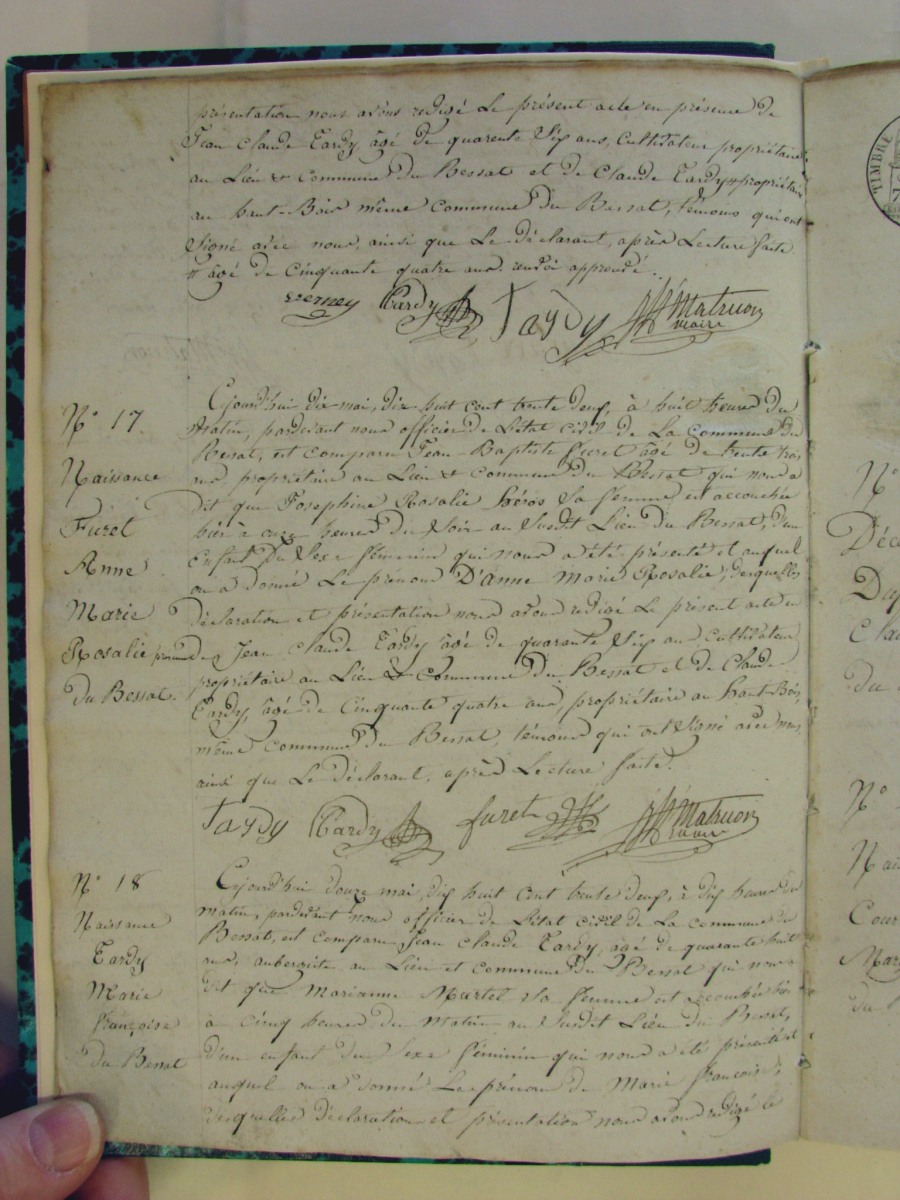 présentation nous avons redigé Le présent acte en présence de
Jean Claude Tardy, âgé de quarente Six ans, Cultivateur propriétaire
au Lieu & Commune du Bessat et de Claude Tardy # propriétaire
au haut-Bois même Commune du Bessat, témoins qui ont
Signé avec nous, ainsi que Le déclarant, après Lecture faite
# âgé de Cinquante quatre ans. renvoi approuvé.
verney Tardy Tardy Matricon
maire
N° 17
Naissance
Furet
Anne
Marie
Rosalie prénoms
du Bessat.
Cejourd'hui dix mai, dix huit cent trente deux, à huit heures du
Matin, pardevant nous officier de L'état civil de La commune du
Bessat, est comparu Jean-Baptiste furet âgé de trente trois
ans propriétaire au Lieu & commune du Bessat qui nous a
dit que Josephine Rosalie Héros Sa femme est accouchée
hier à onze heures du Soir au Susdit Lieu du Bessat, d'un
Enfant du Sexe féminin qui nous a été présenté et auquel
on a donné Le prénom D'anne Marie Rosalie; desquelles
déclaration et présentation nous avons redigé Le présent acte en
de Jean Claude Tardy âgé de quarante Six ans Cultivateur
propriétaire au Lieu & Commune du Bessat et de Claude
Tardy âgé de Cinquante quatre ans, propriétaire au haut-Bois,
même Commune du Bessat, témoins qui ont Signé avec nous,
ainsi que Le déclarant, après Lecture faite.
Tardy Tardy furet Matricon
maire
N° 18
Naissance
Tardy
Marie
françoise
du Bessat
Cejourd'hui douze mai, dix huit Cent trente deux, à dix heures du
Matin, pardevant nous officier de L'état civil de La commune du
Bessat, est comparu Jean Claude Tardy, âgé de quarante huit
ans, aubergiste au Lieu et commune du Bessat qui nous a
dit que Marianne Martel Sa femme est accouchée hier
à cinq heures du Matin au Susdit Lieu du Bessat,
d'un enfant du Sexe féminin qui nous a été présenté et
auquel on a donné Le prénom de Marie françoise;
desquelles déclaration et présentation nous avons redigé le
TIMBRE
N°
N°